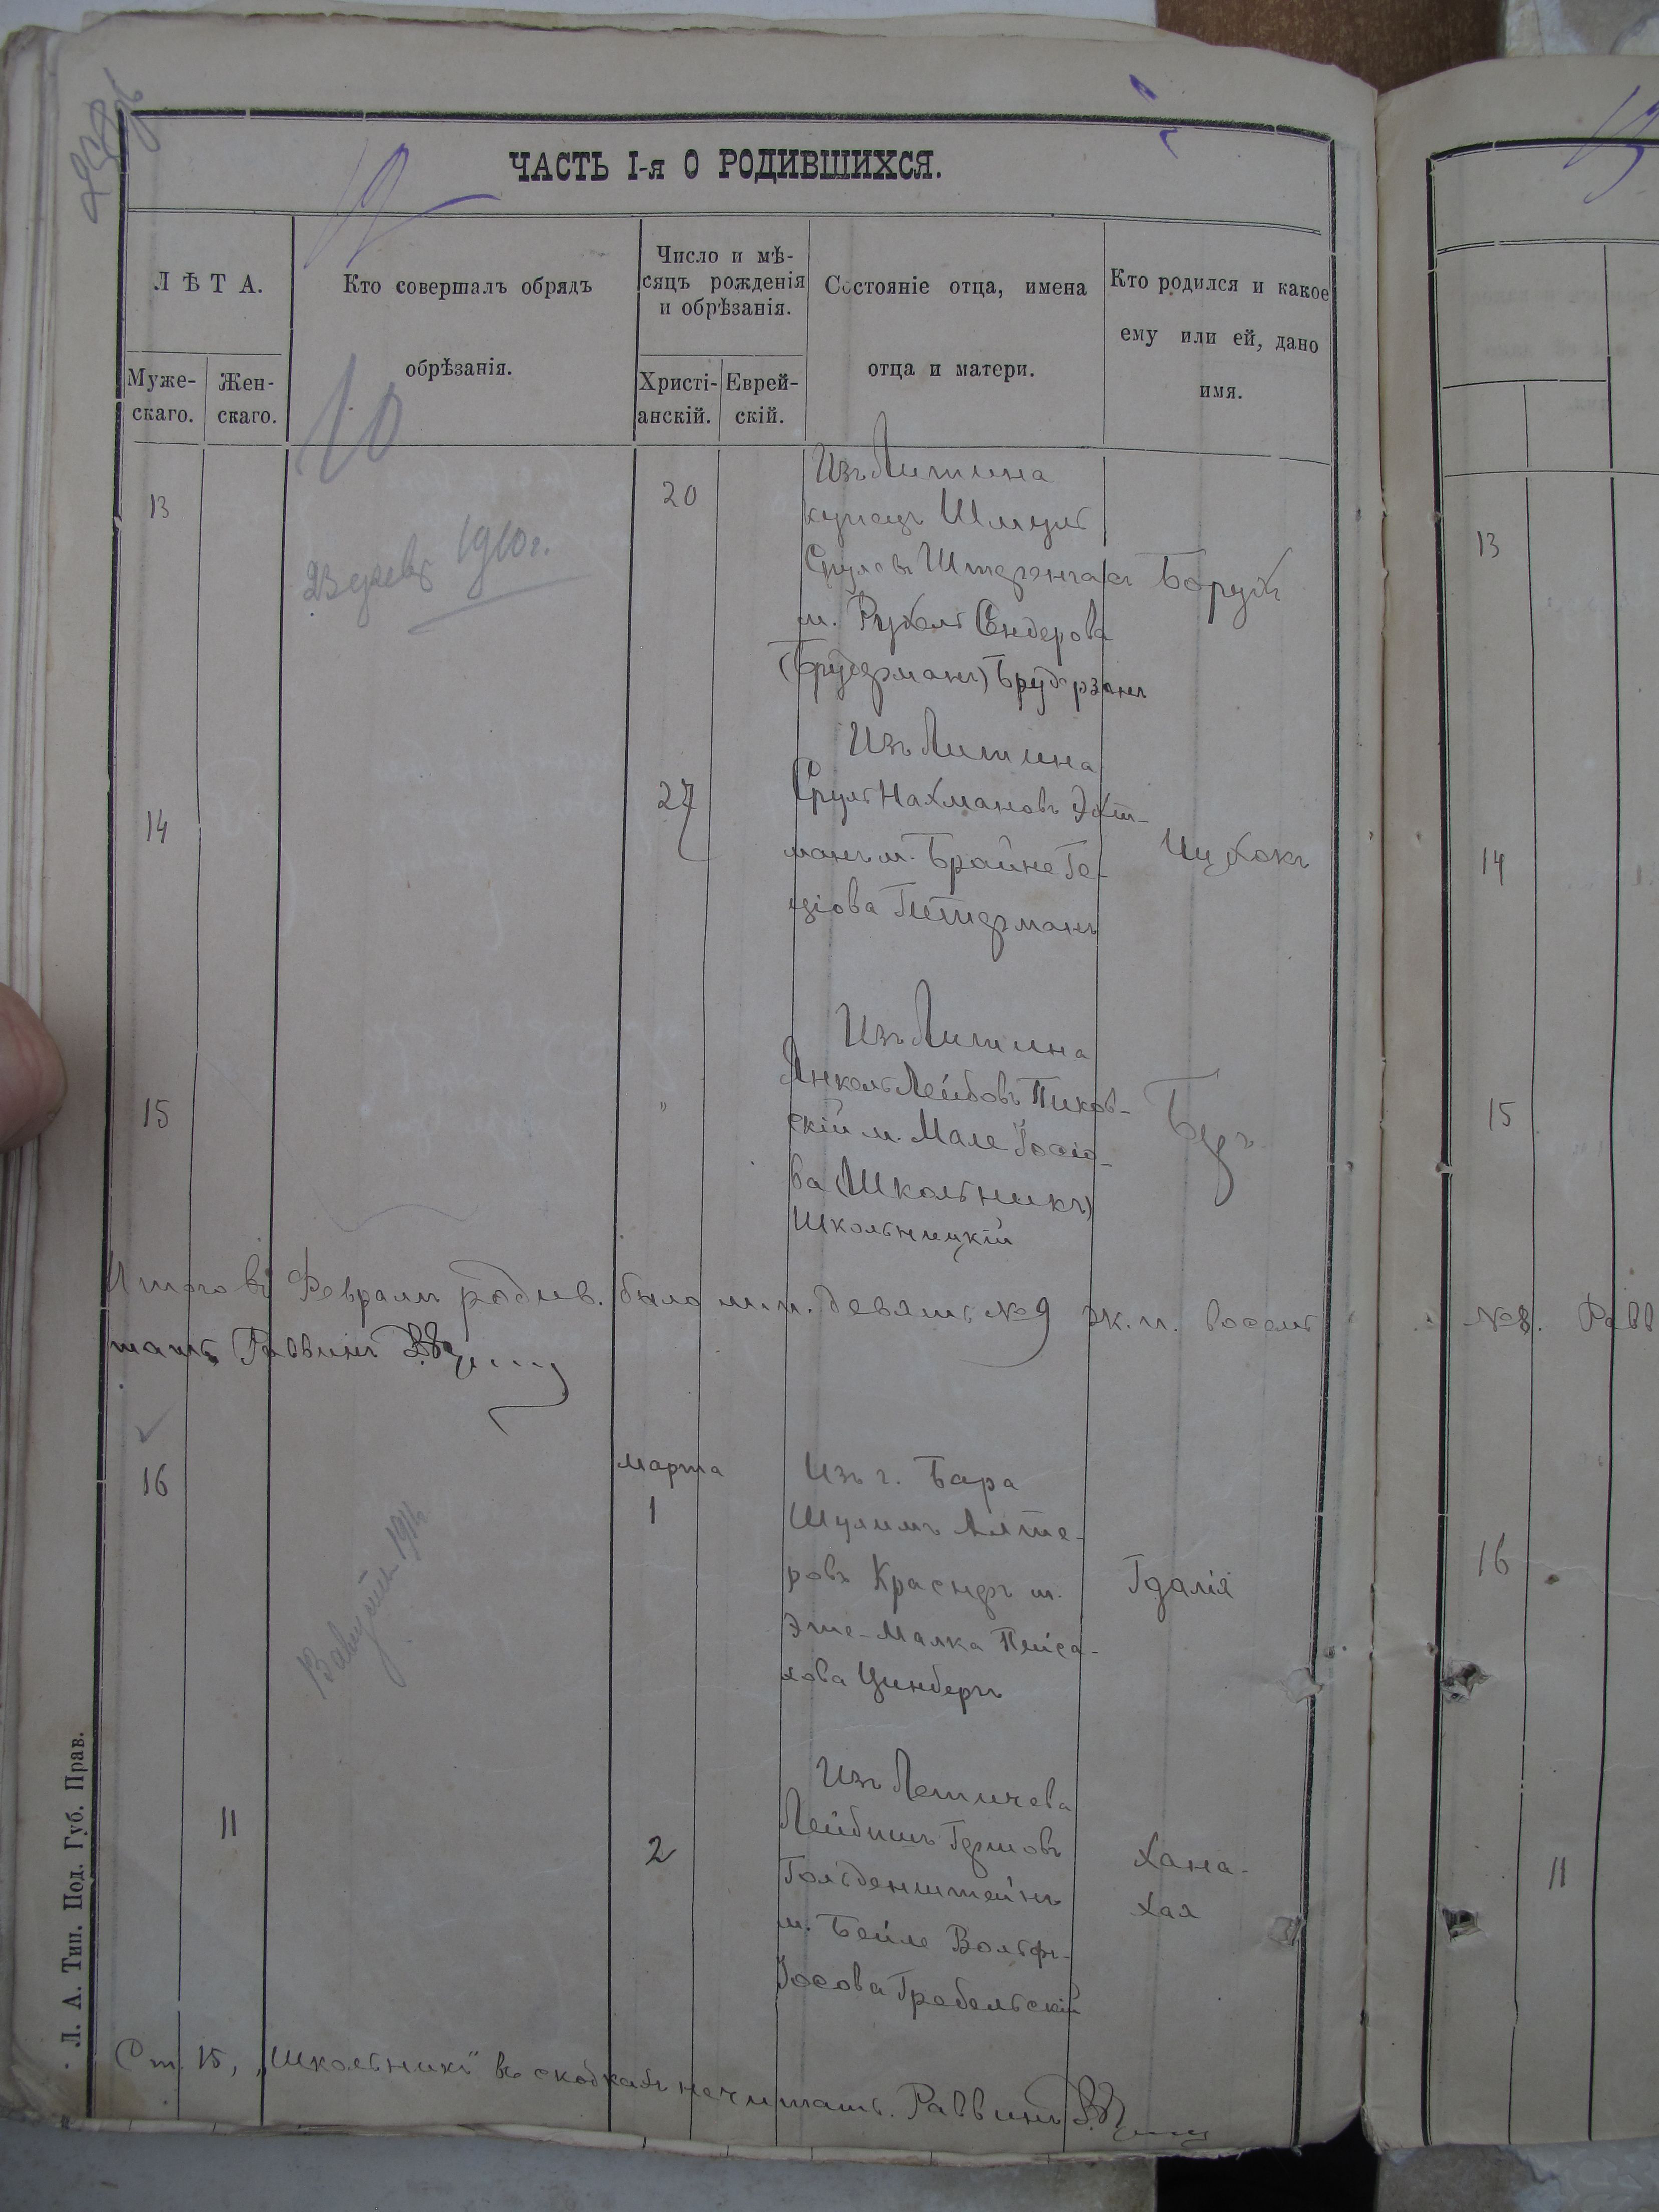 ЧАСТЬ I-я О РОДИВШИХСЯ.
ЛѢТА.
Муже-
скаго.
Жен-
скаго.
Кто совершалъ обрядъ
обрѣзанія.
Число и мѣ-
сяцъ рожденія
и обрѣзанія.
Христі-
анскій.
Еврей-
скій.
Состояніе отца, имена
отца и матери.
Кто родился и какое
ему или ей, дано
имя.
10
1910 г.
13
20
Изъ Литина
купецъ Шмуль
Срулевъ
м. Рухель Сендерова
(Брудерманъ) Брудерзонъ
Борухъ
13
14
27
Изъ Литина
Сруль Нахмановъ Эхт-
манъ м. Брайне Ге-
Гетерманъ
Ицхокъ
14
15
"
Изъ Литина
Янкель Лейбовъ Пиков-
скій м. Мале Іосіо-
ва (Школьникъ)
Школьницкій
Беръ
15
Итого въ Февралѣ родив. было м. п. девять №9 ж. п. восемь
№8. Равв
Раввинъ
16
марта
1
Изъ г. Бара
Шулимъ Альте-
ровъ Краснеръ м.
Эте-Малка Пейса-
хова Цинбергъ
Гдалія
16
11
2
Изъ Летичева
Лейбишъ Гершовъ
Гольденштейнъ
м. Бейле Вольфъ-
Іосова Гребельскій
Хана-
Хая
11
Ст. 15, „Школьникъ" въ скобкахъ не читать. Раввинъ
Л. А. Тип. Под. Губ. Прав.